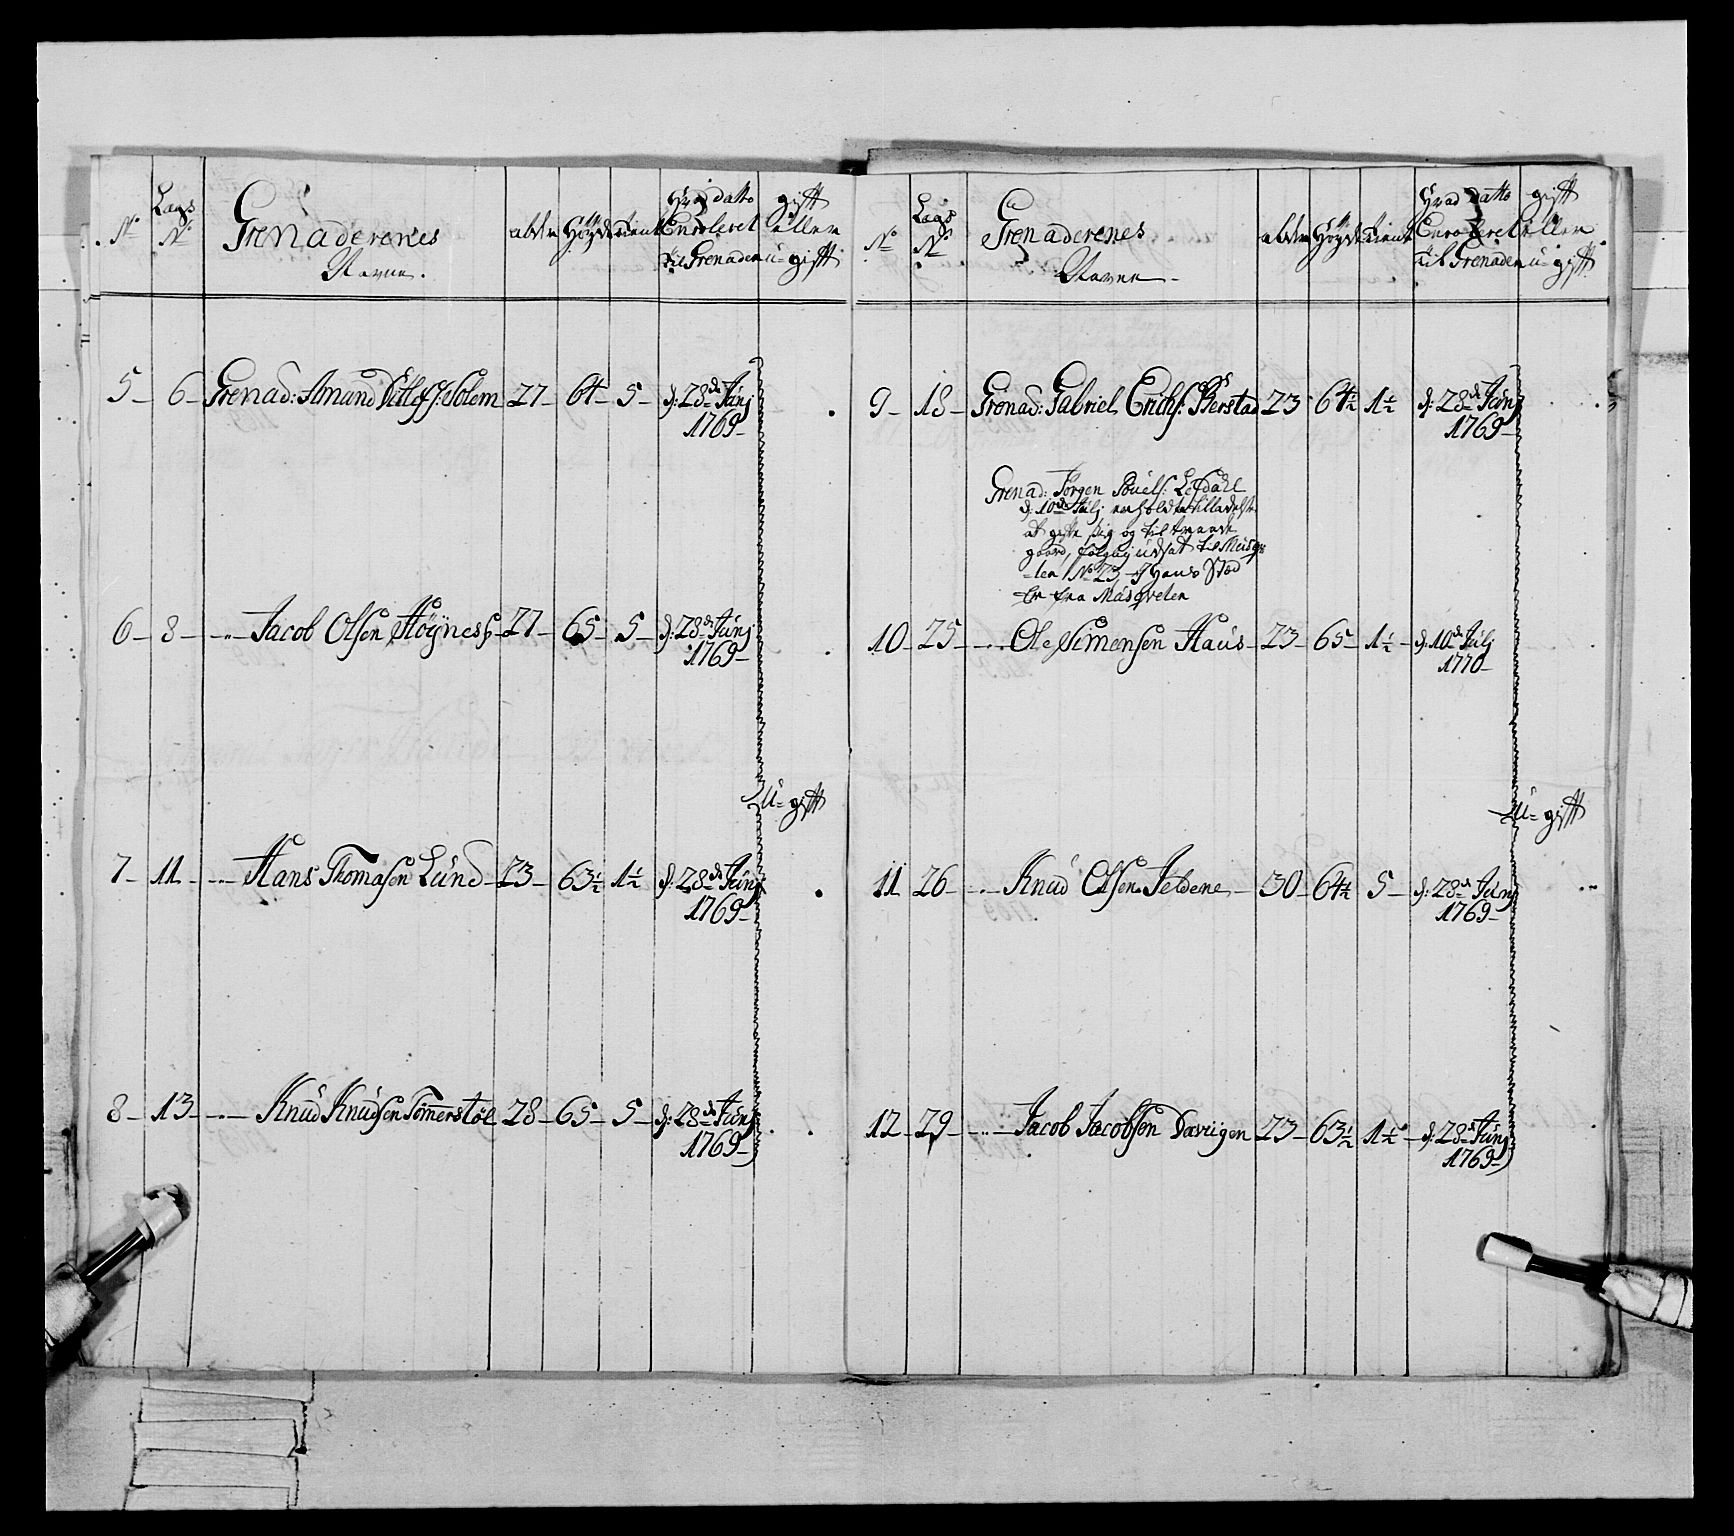 No Lægs No Grenaderenes Navne. alder Høyde tient Hvad datto Enrolleret til Grenader gift eller u-gift
5 - 6 - Grenad: Amund Ditlefs: Solem 27 - 64 - 5 - d: 28de Junj
1769 -
6 - 8 - Jacob Olsen Høÿness - 27 - 65 - 5 - d: 28de Junj
1769 -
U-gift
7 - 11 - Hans Thomasen Lund - 23 - 63½ 1½ d: 28de Junj
1769 -
8 - 13 - Knud Knudsen Tømerstøe 28 - 65 - 5 - d: 28de Junj
1769 -
No Lægs No Grenaderenes Navne - alder Høyde tient Hvad datto Enrolleret til Grenader gift eller u-gift
9 - 18 - Grenad: Gabriel Erichs: Berstad 23 64½ 1½ d: 28de Junj
1769 -
Grenad: Jørgen Povels:
d: 10de Julj erholdte tilladelse
at gifte sig og til træde
gaard, udsat til
No 23 Hans Stæd
er fra Musqveten
10 - 25 - Ole Simensen Haus - 23 - 65 - 1½ - d: 10de Julj
1770 -
U-gift
11 26 - Knud Olsen Jeldene - 30 - 64½ 5 - d: 28de Junj
1769 -
12 - 29 - Jacob Jacobsen 23 - 63½ 1½ - d: 28de Junj
1769 -